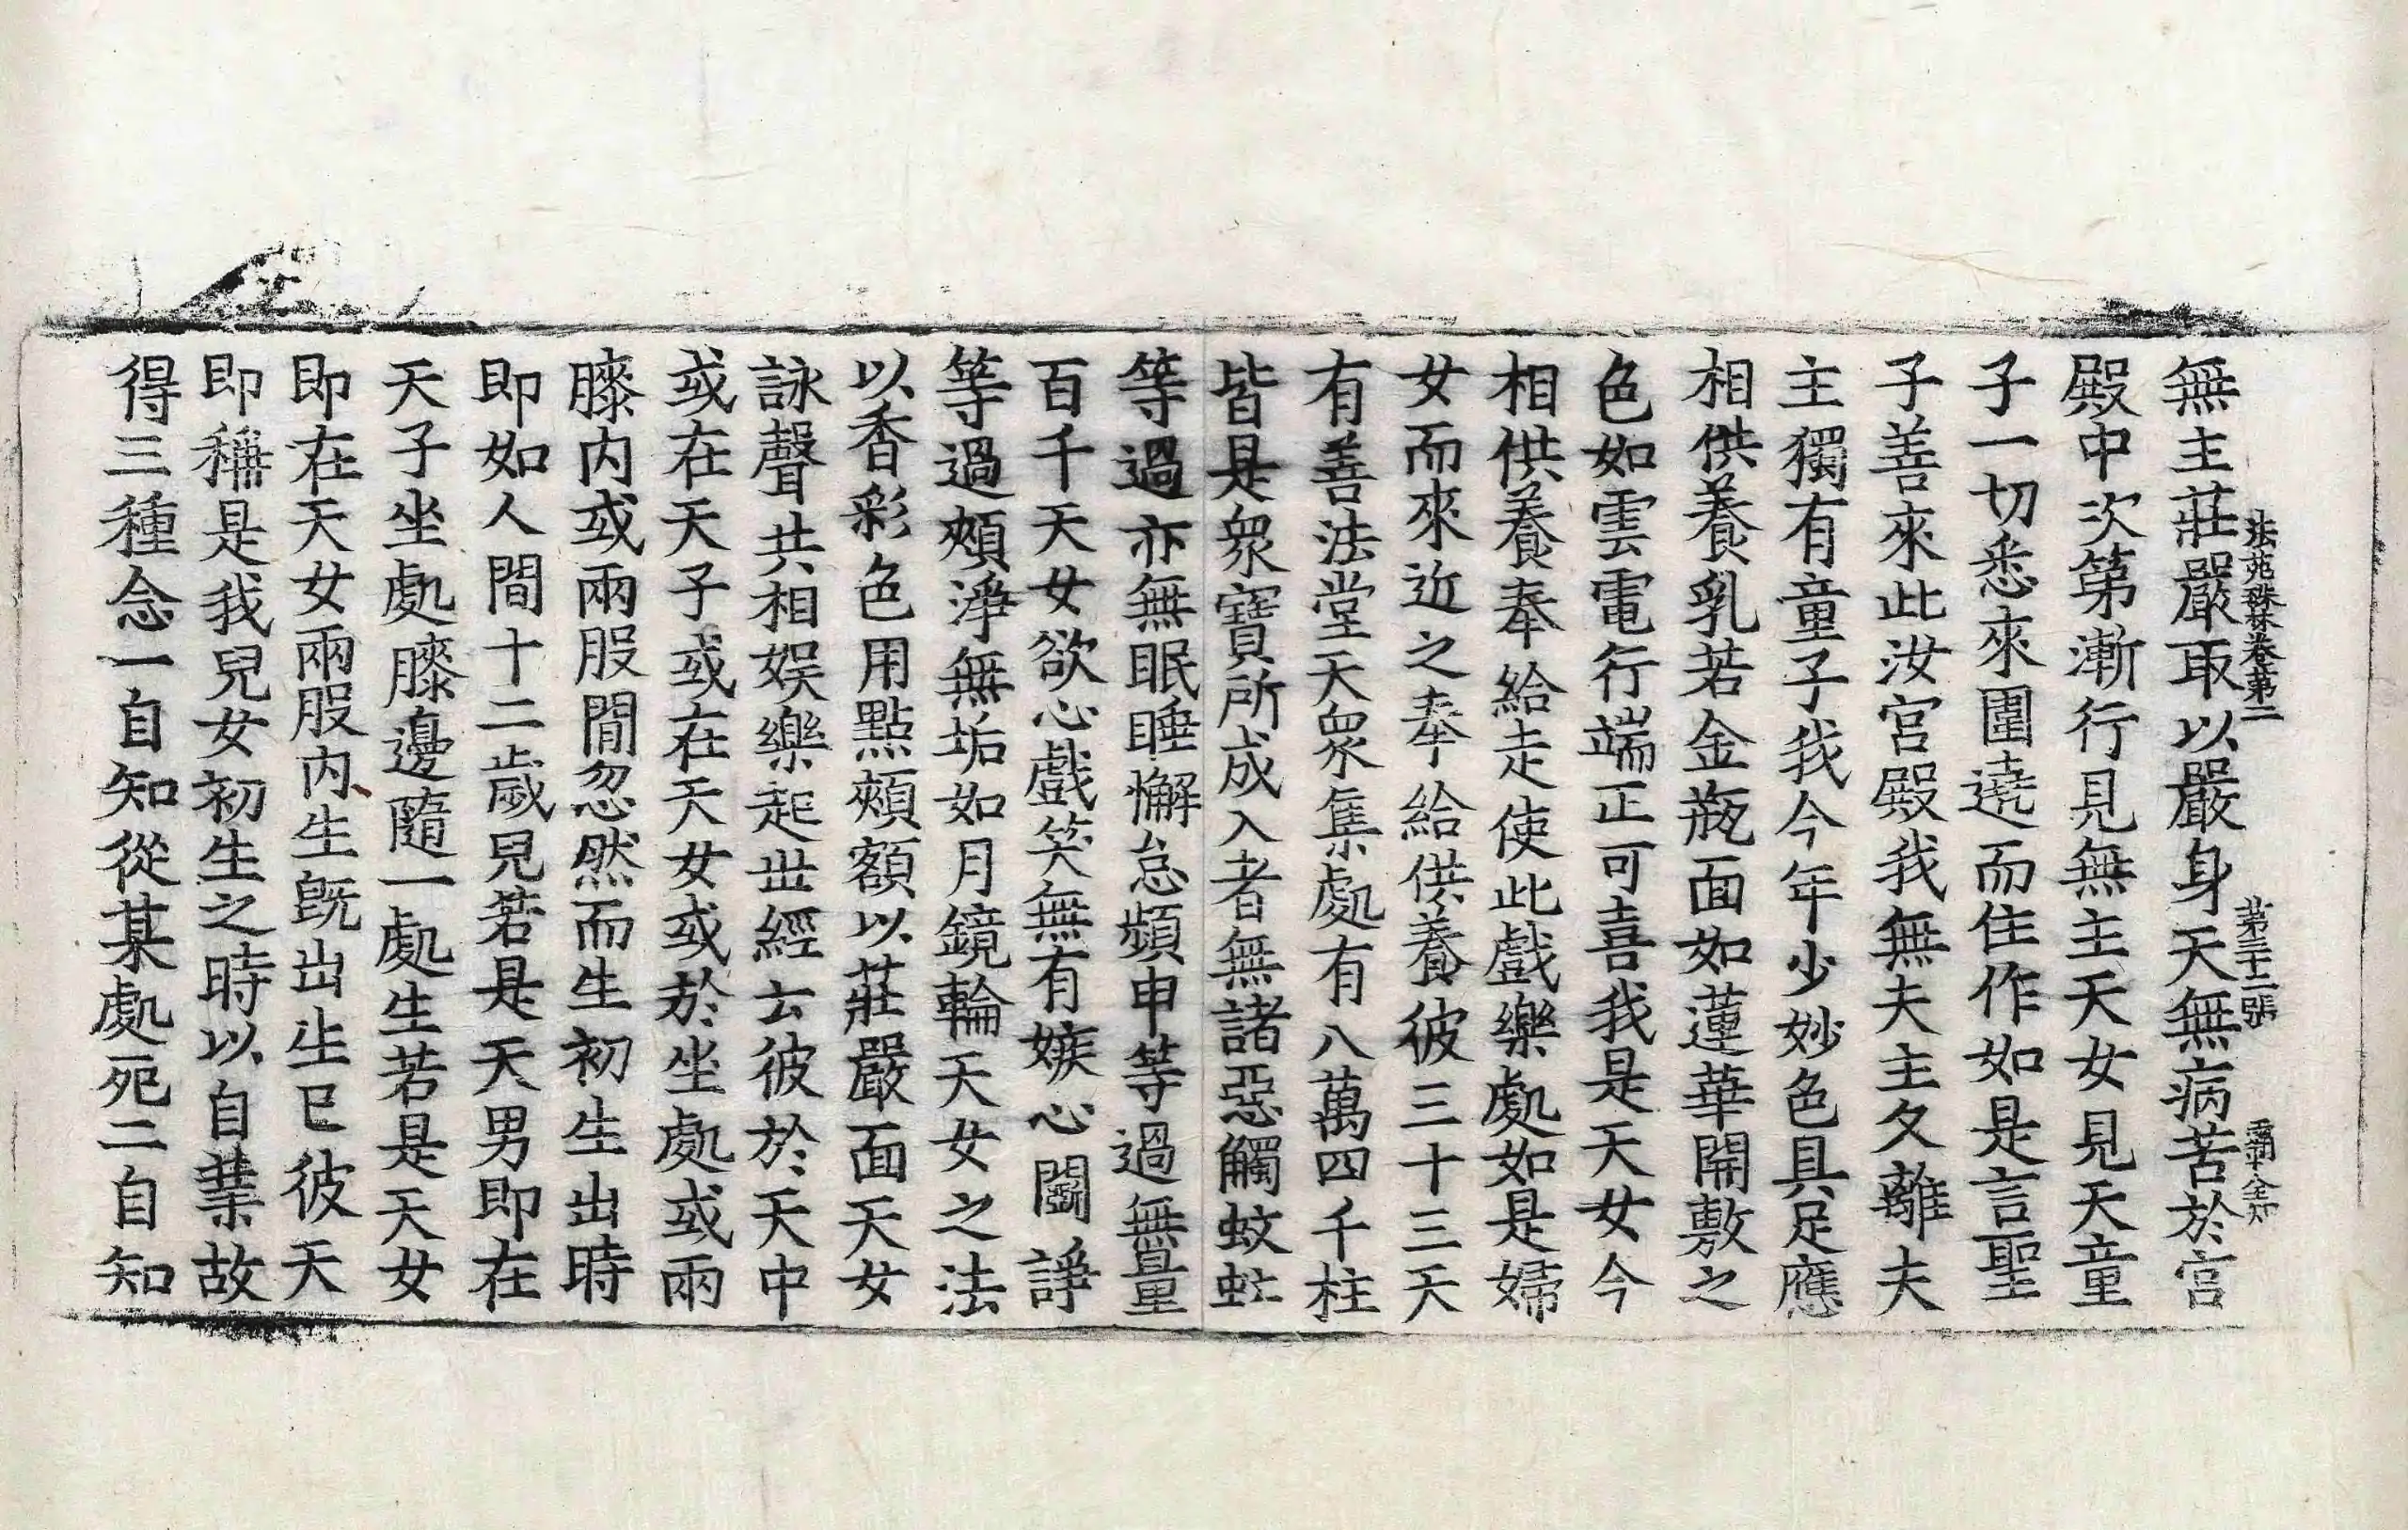 無主莊嚴取以嚴身天無病苦於宫
法苑珠林卷苐二 苐三十二張 覇 金
殿中次第漸行見無主天女見天童
子一切悉來圍遶而住作如是言聖
子善來此汝宫殿我無夫主久離夫
主獨有童子我今年少妙色具足應
相供養乳若金瓶面如蓮華開敷之
色如雲電行端正可喜我是天女今
相供養奉給走使此戲樂處如是婦
女而來近之奉給供養彼三十三天
有善法堂天眾集處有八萬四千柱
皆是眾寶所成入者無諸惡觸蚊䖟
等過亦無眠睡懈怠頻申等過無量
百千天女欲心戲笑無有嫉心鬪諍
等過頰淨無垢如月鏡輪天女之法
以香彩色用點頰額以莊嚴面天女
詠聲共相娱樂起世經云彼於天中
或在天子或在天女或於坐處或兩
膝内或兩股閒忽然而生初生出時
即如人間十二歲兒若是天男即在
天子坐處膝邊隨一處生若是天女
即在天女兩股内生旣出生已彼天
即稱是我兒女初生之時以自業故
得三種念一自知從某處死二自知